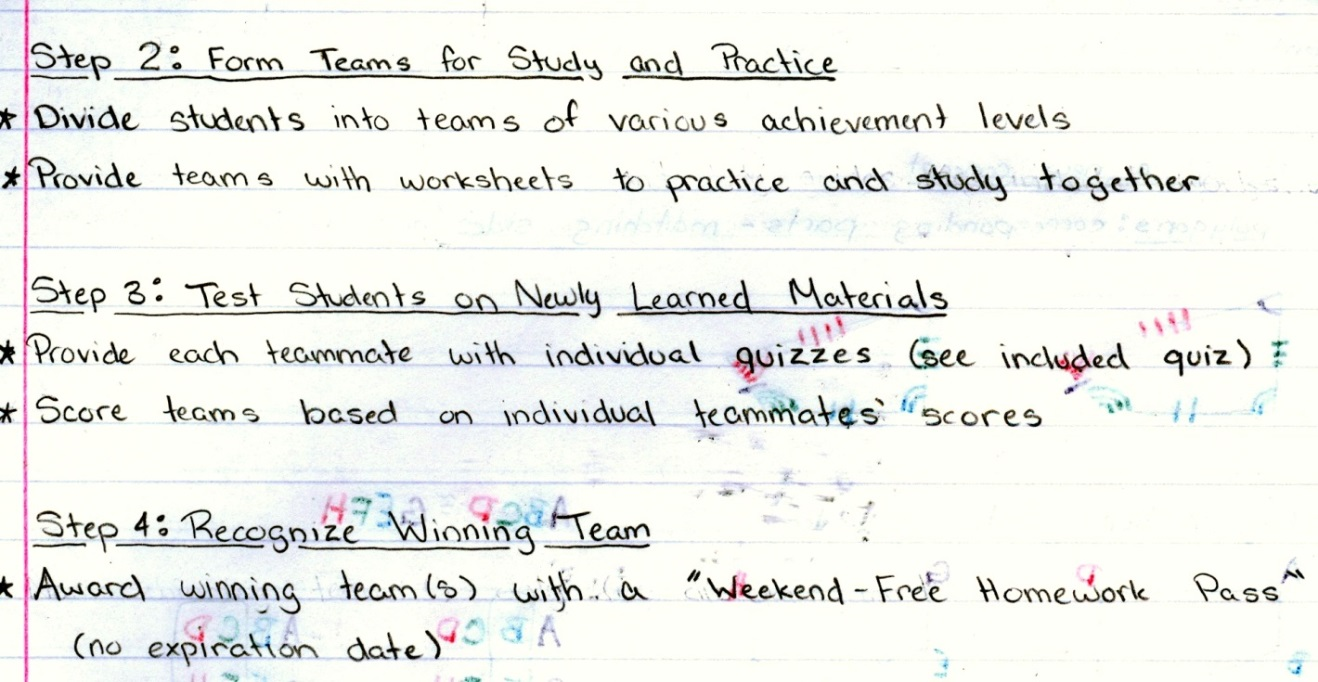 Step 2: Form Teams for Study and Practice
* Divide students into teams of various achievement levels
* Provide teams with worksheets to practice and study together
Step 3: Test Students on Newly Learned Materials
* Provide each teammate with individual quizzes (see included quiz)
* Score teams based on individual teammates' scores
Step 4: Recognize Winning Team
* Award winning team(s) with a "Weekend-Free Homework Pass"
(no expiration date)